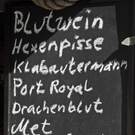 Blutwein
Hexenpisse
Klabautermann
Port Royal
Drachenblut
Met